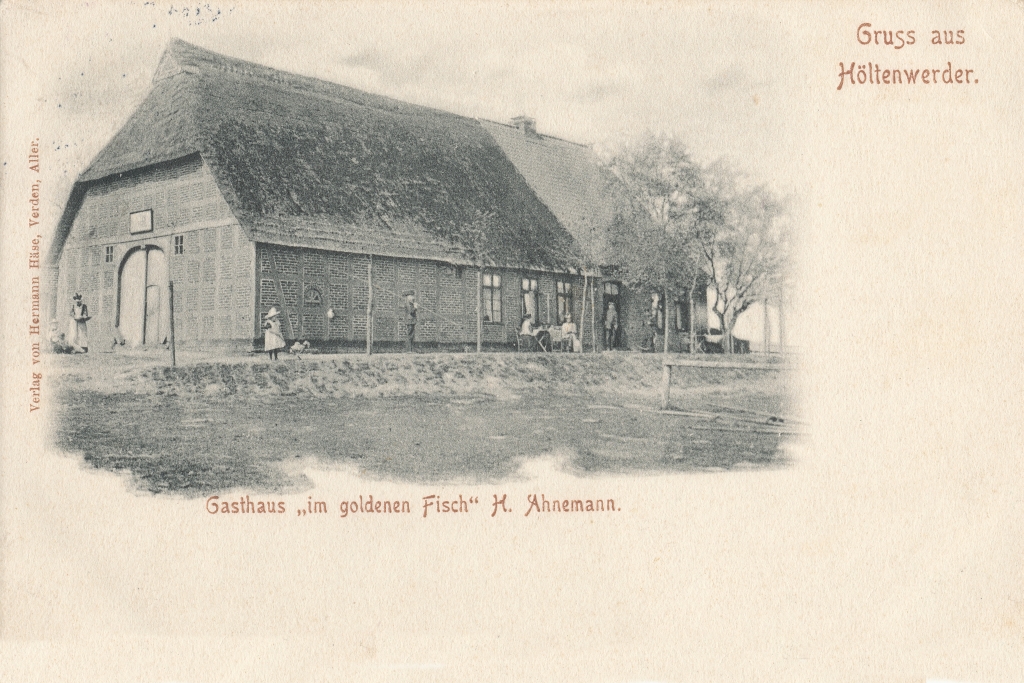 Gruss aus
Höltenwerder.
Verlag von Hermann Häse, Verden, Aller.
Gasthaus „im goldenen Fisch“ H. Ahnemann.